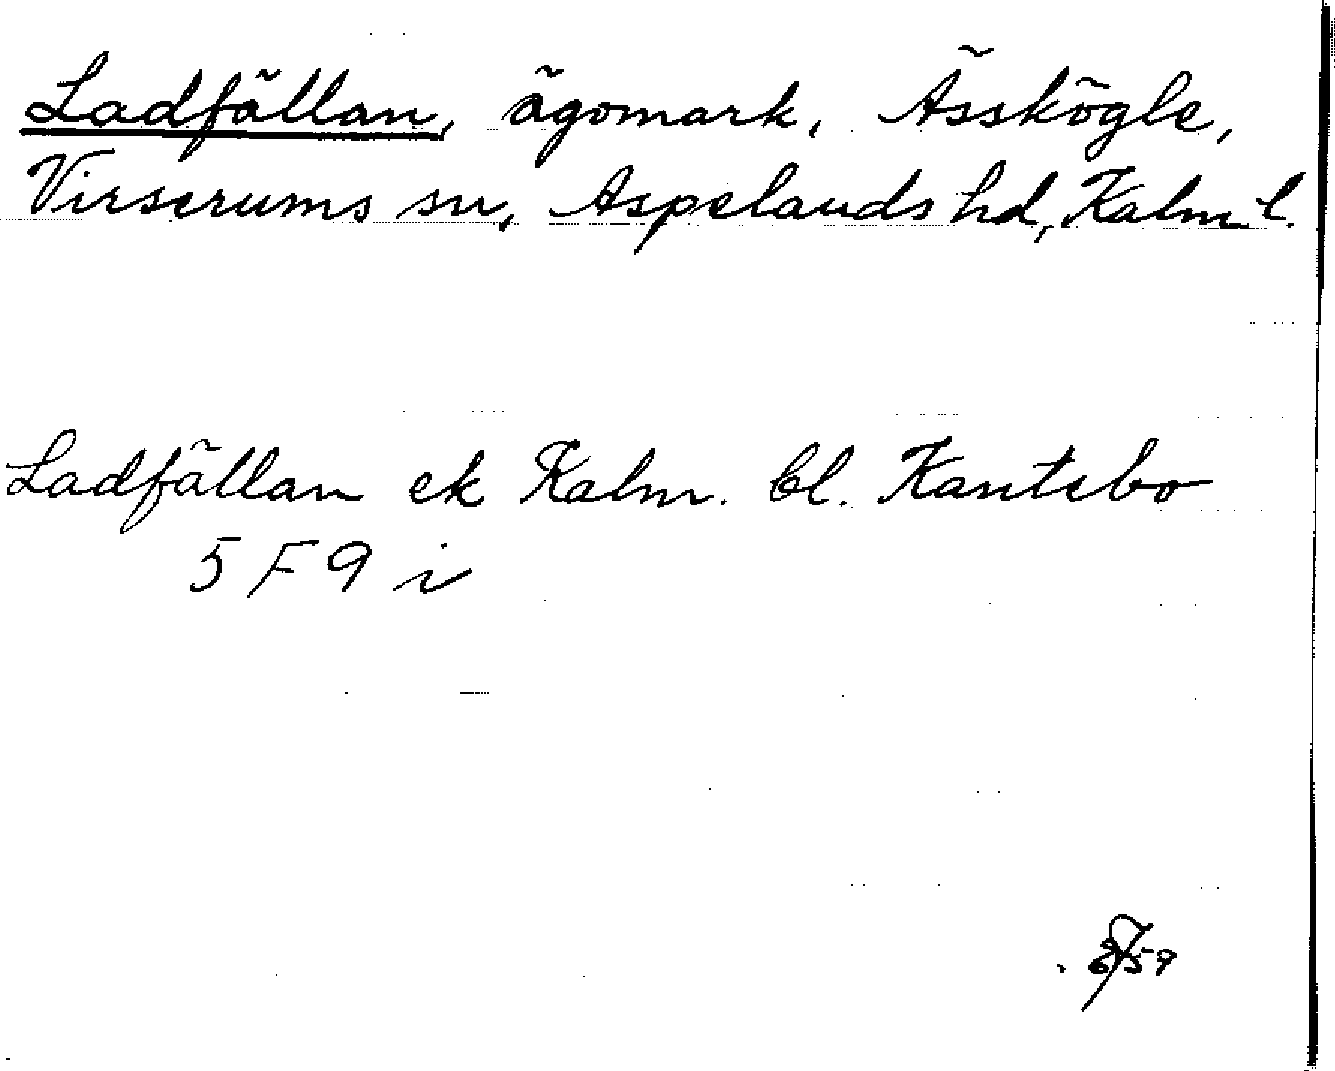 Ladfällan, ägomark, Ässkögle,
Virserums sn, Aspelands hd, Kalm. l.
Ladfällan ek Kalm. bl. Kantebo
5 F 9 i